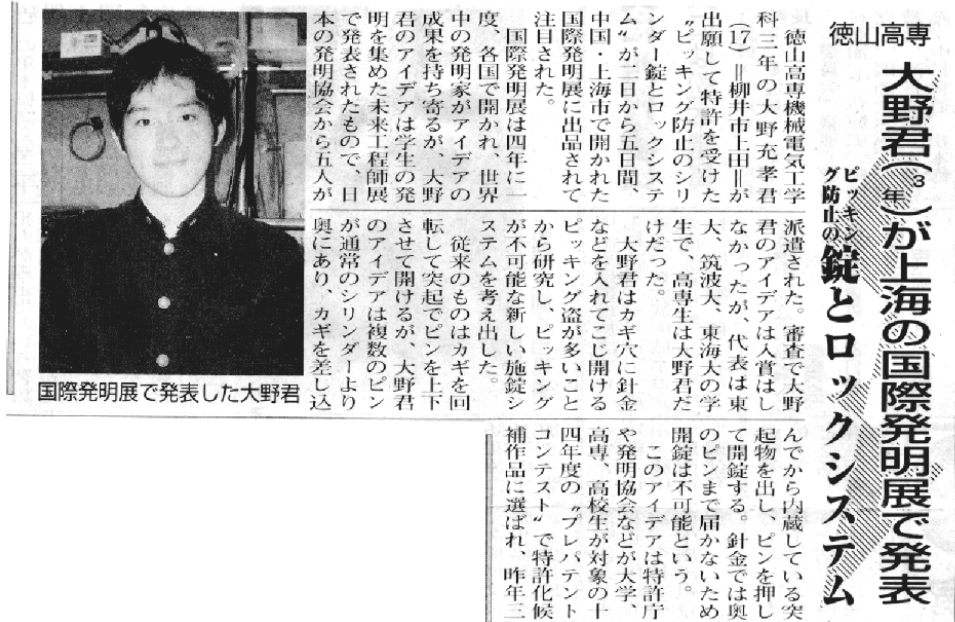 徳山高専
大野君(3年)が上海の国際発明展で発表
ピッキング防止の錠とロックシステム
徳山高専機械電気工学
科三年の大野充孝君
(17)＝柳井市上田＝が
出願して特許を受けた
〝ピッキング防止のシリ
ンダー錠とロックシステ
ム〟が二日から五日間、
中国・上海市で開かれた
国際発明展に出品されて
注目された。
国際発明展は四年に一
度、各国で開かれ、世界
中の発明家がアイデアの
成果を持ち寄るが、大野
君のアイデアは学生の発
明を集めた未来工程師展
で発表されたもので、日
本の発明協会から五人が
派遣された。審査で大野
君のアイデアは入賞はし
なかったが、代表は東
大、筑波大、東海大の学
生で、高専生は大野君だ
けだった。
大野君はカギ穴に針金
などを入れてこじ開ける
ピッキング盗が多いこと
から研究し、ピッキング
が不可能な新しい施錠シ
ステムを考え出した。
従来のものはカギを回
転して突起でピンを上下
させて開けるが、大野君
のアイデアは複数のピン
が通常のシリンダーより
奥にあり、カギを差し込
んでから内蔵している突
起物を出し、ピンを押し
て開錠する。針金では奥
のピンまで届かないため
開錠は不可能という。
このアイデアは特許庁
や発明協会などが大学、
高専、高校生が対象の十
四年度の〝プレパテント
コンテスト〟で特許化候
補作品に選ばれ、昨年三
国際発明展で発表した大野君